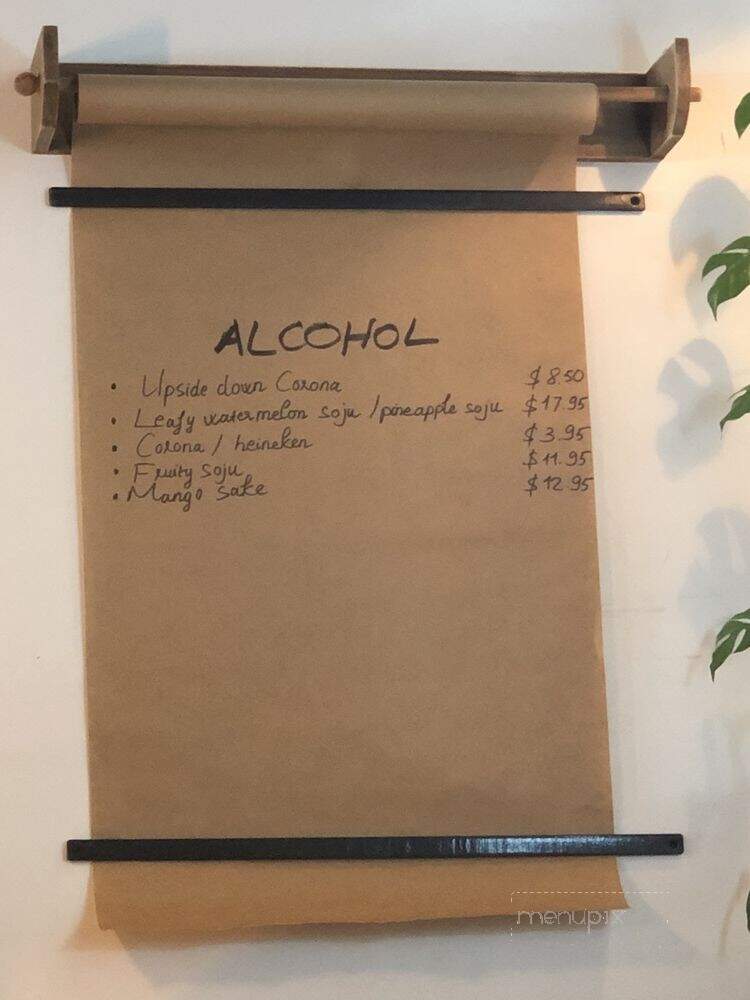 ALCOHOL
• Upside down Corona $8.50
• Leafy watermelon soju / pineapple soju $17.95
• Corona / heineken $3.95
• Fruity soju $11.95
• Mango sake $12.95
menupix